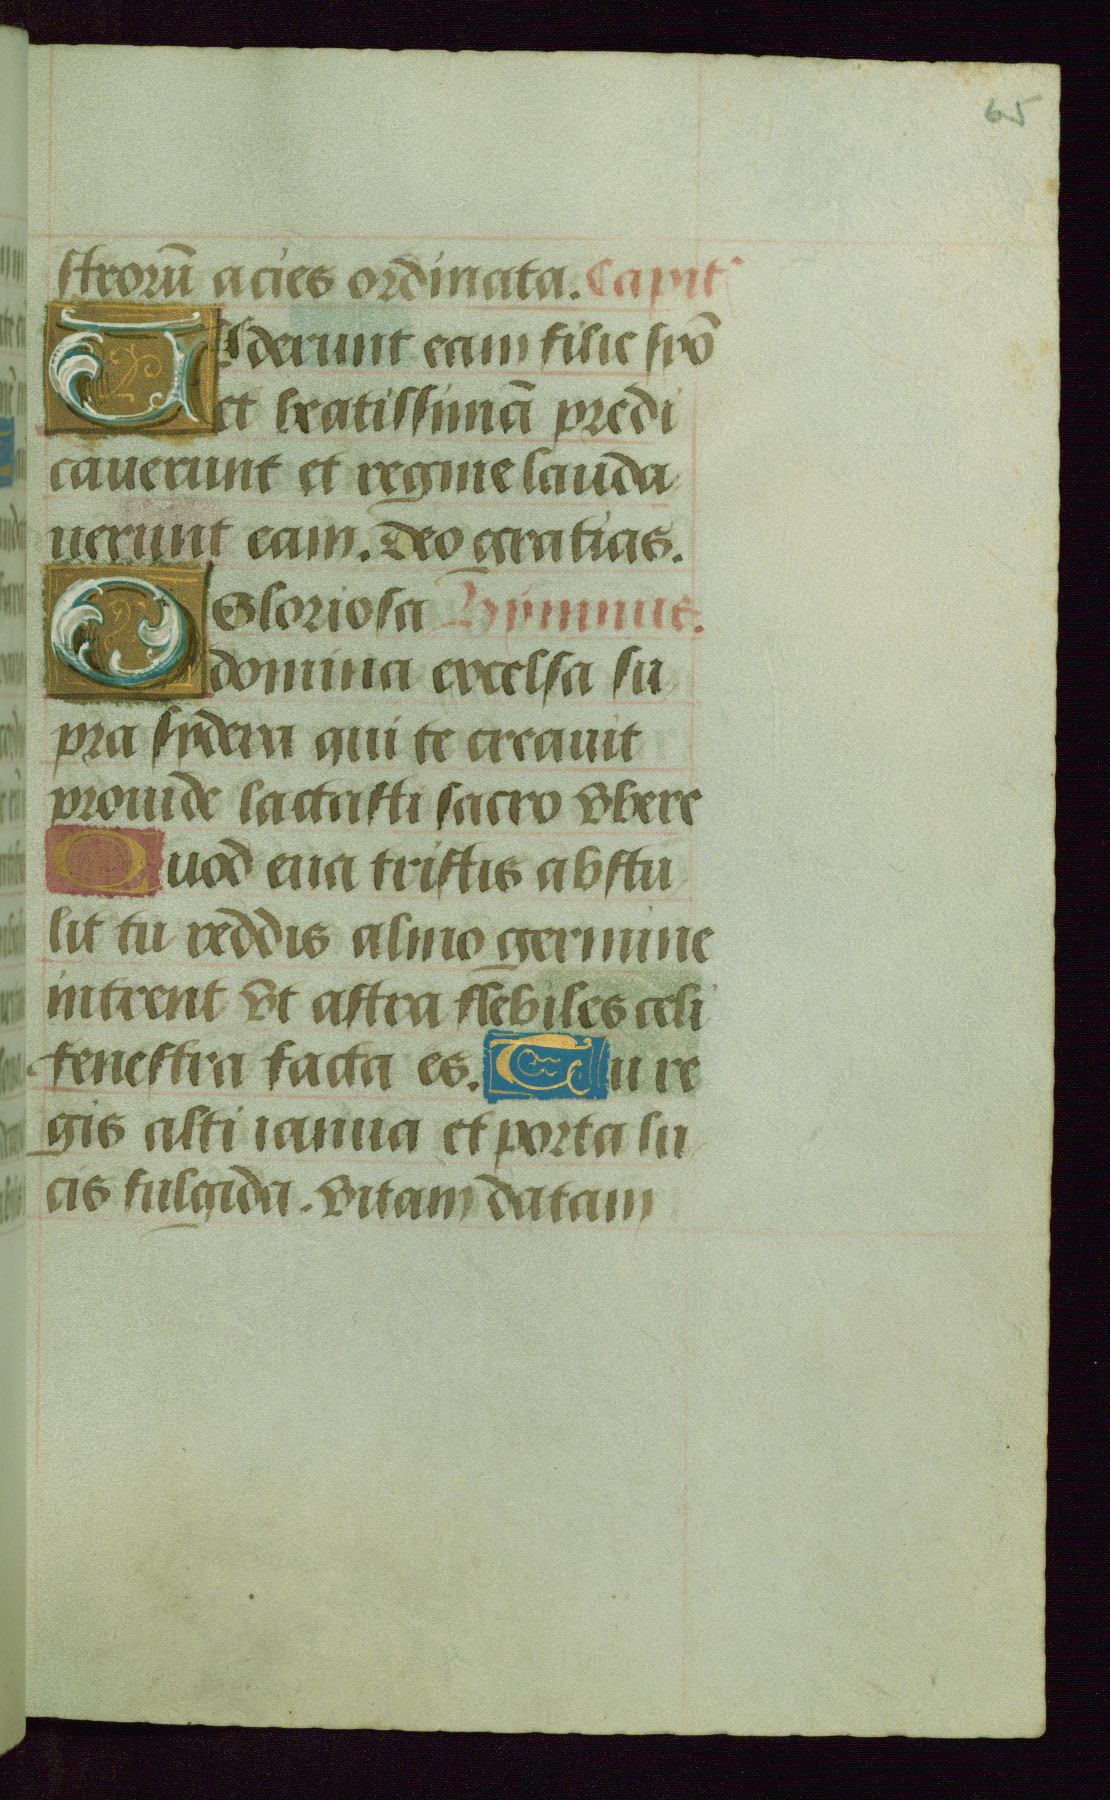 65
strorū acies ordinata. Capit
Viderunt eam filie syō
et beatissimā predi
cauerunt et regine lauda
uerunt eam. Deo gratias.
O Gloriosa Hympnus.
domina excelsa su
pra sydera qui te creauit
prouide lactasti sacro vbere
Quod eua tristis abstu
lit tu reddis almo germine
intrent vt astra flebiles celi
fenestra facta es. Tu re
gis alti ianua et porta lu
cis fulgida. vitam datam